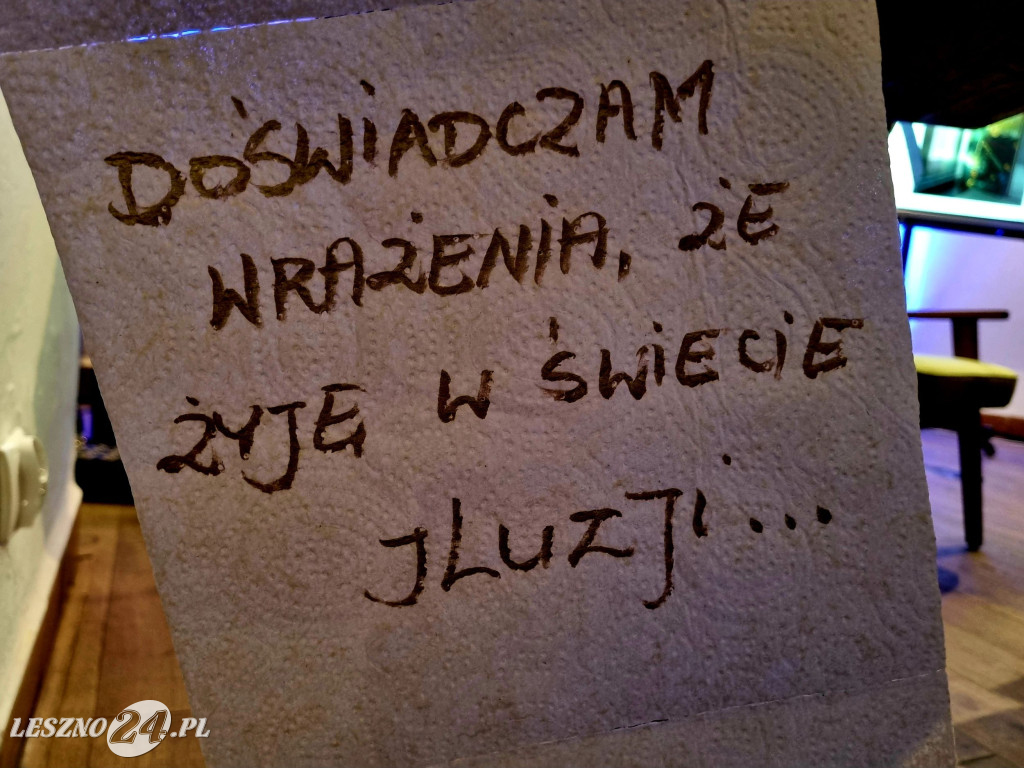 DOŚWIADCZAM
WRAŻENIA, ŻE
ŻYJE W ŚWIECIE
JLUZJI...
LESZNO24.PL